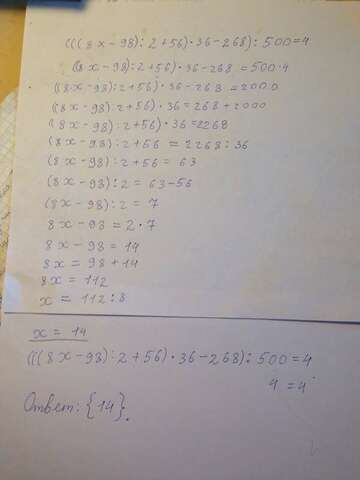 (((8x-98):2+56)·36-268):500=4
((8x-98):2+56)·36-268=500·4
((8x-98):2+56)·36-268=2000
((8x-98):2+56)·36=268+2000
((8x-98):2+56)·36=2268
(8x-98):2+56=2268:36
(8x-98):2+56=63
(8x-98):2=63-56
(8x-98):2=7
8x-98=2·7
8x-98=14
8x=98+14
8x=112
x=112:8
x=14
(((8x-98):2+56)·36-268):500=4
4=4
Ответ: {14}.